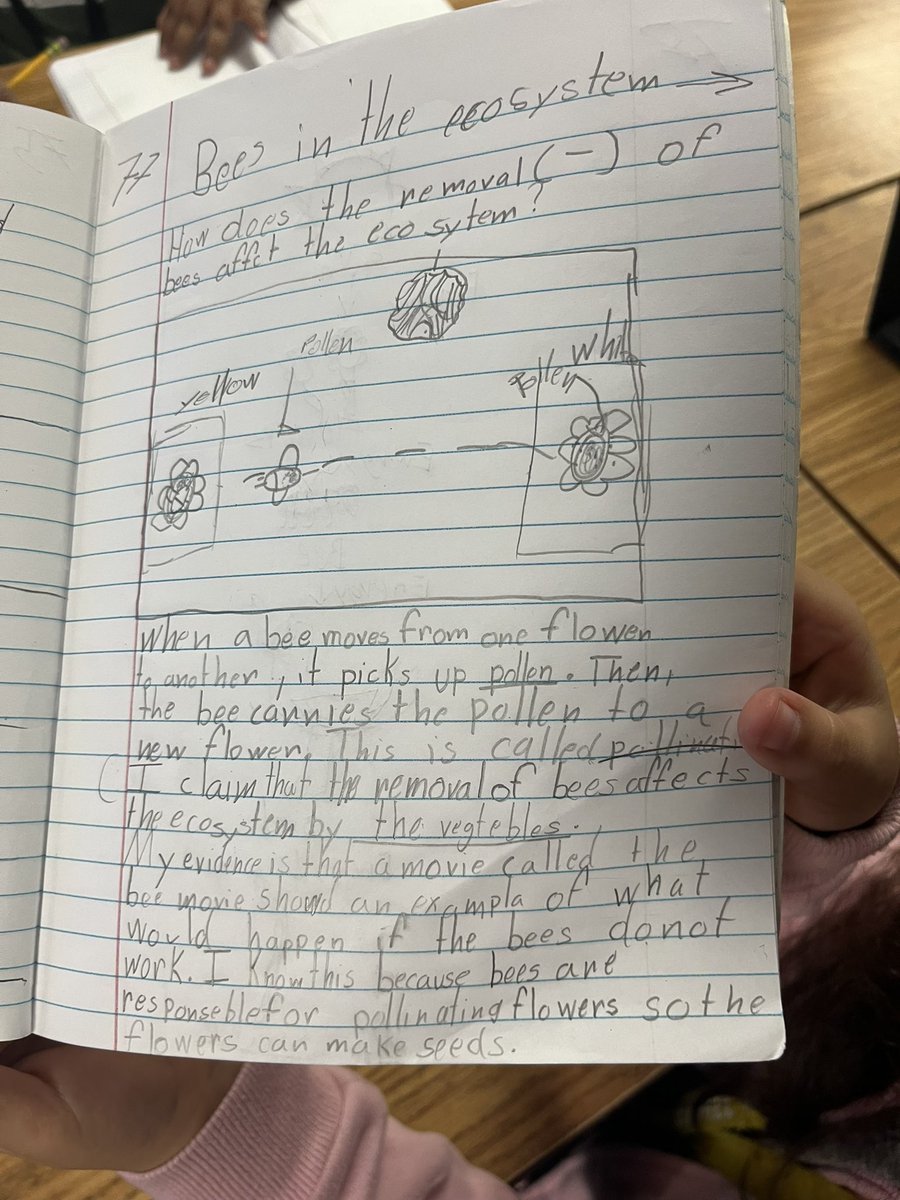 77 Bees in the ecosystem →
How does the removal (-) of
bees affct the eco sytem?
Pollen
yellow
Whi
Pollen
When a bee moves from one flower
to another, it picks up pollen. Then,
the bee carries the pollen to a
new flower. This is called
( I claim that the removal of bees affects
the ecosystem by the vegtebles.
My evidence is that a movie called the
bee movie showd an exampla of what
would happen if the bees do not
work. I know this because bees are
responseble for pollinating flowers so the
flowers can make seeds.